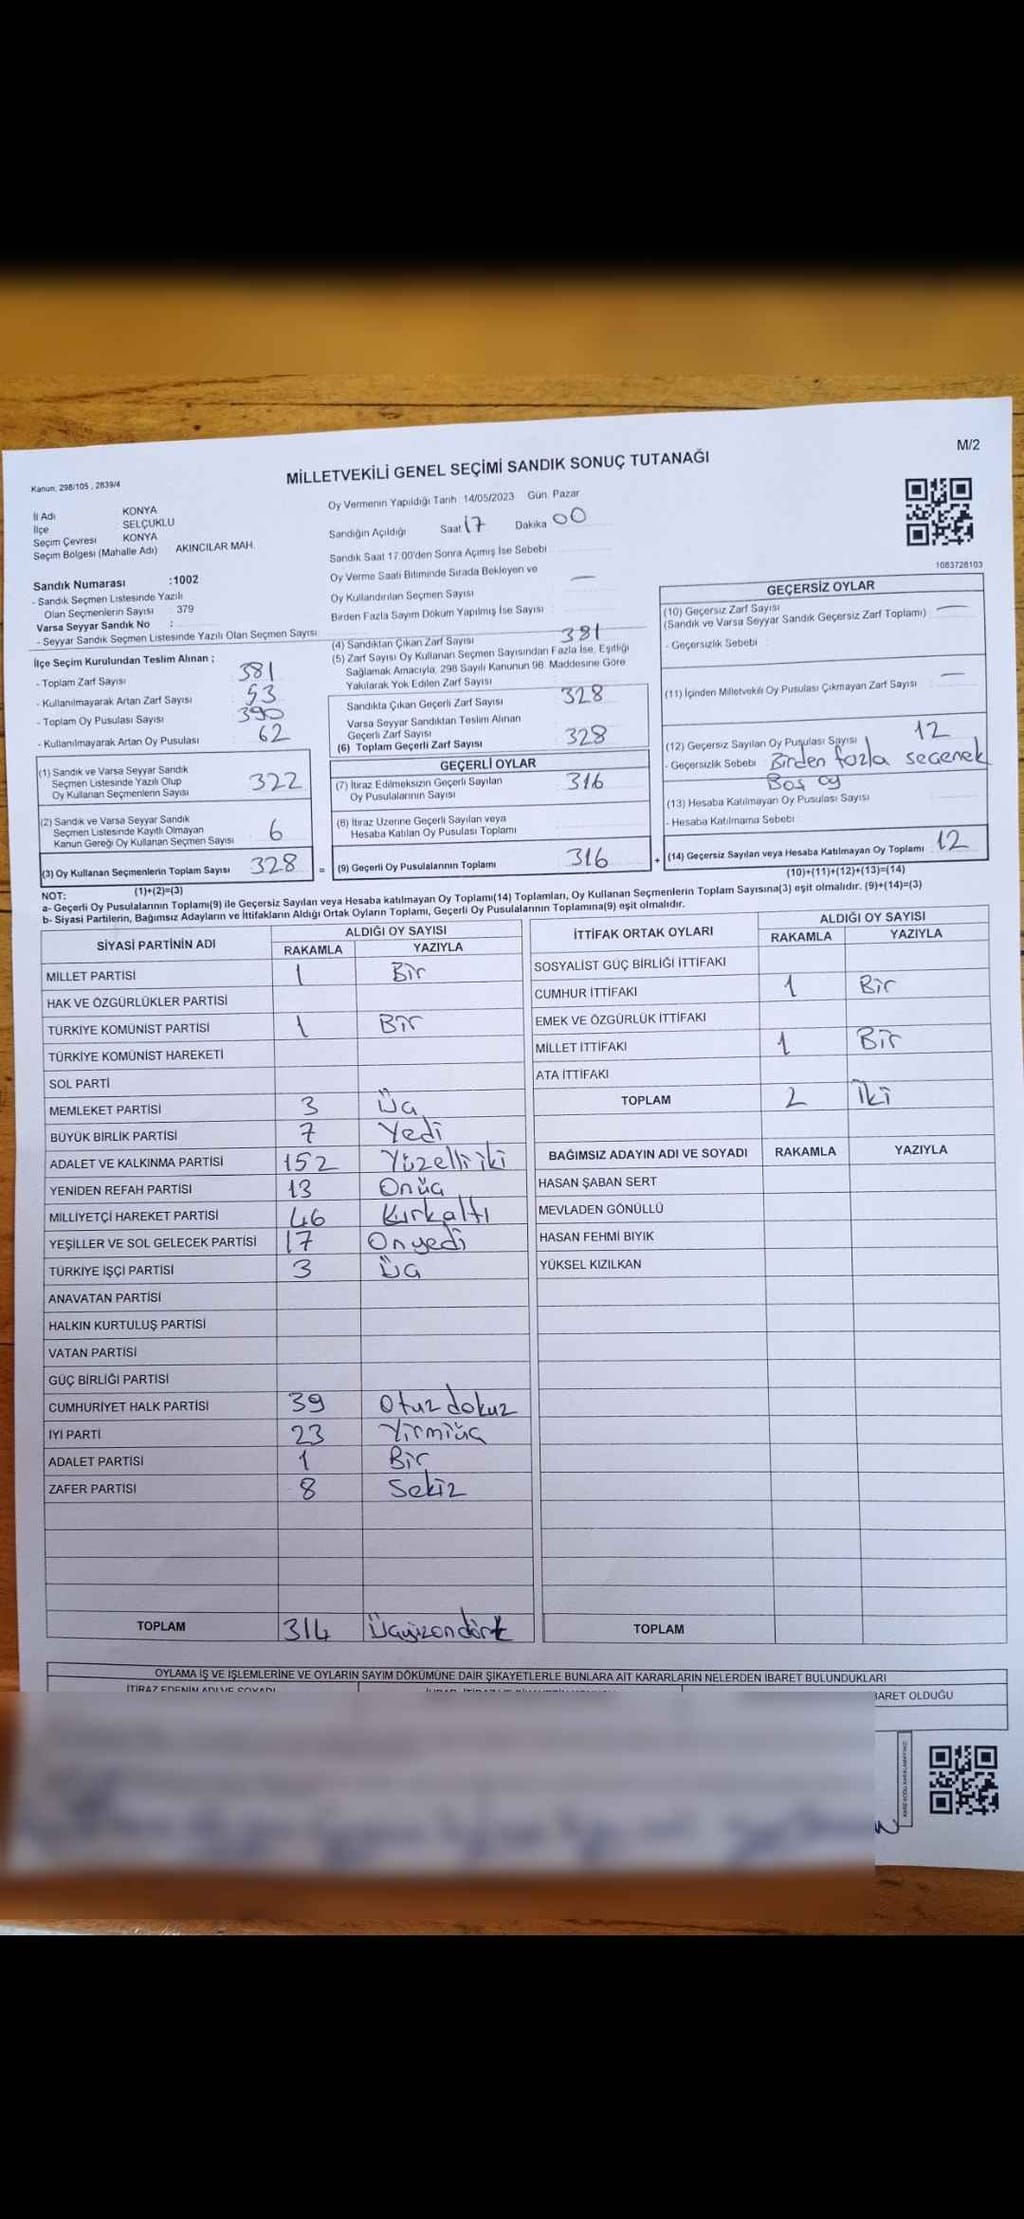 M/2
MİLLETVEKİLİ GENEL SEÇİMİ SANDIK SONUÇ TUTANAĞI
Kanun, 298/105 , 2839/4
İl Adı KONYA
İlçe SELÇUKLU
Seçim Çevresi KONYA
Seçim Bölgesi (Mahalle Adı) AKINCILAR MAH.
Sandık Numarası :1002
- Sandık Seçmen Listesinde Yazılı
Olan Seçmenlerin Sayısı : 379
Varsa Seyyar Sandık No :
- Seyyar Sandık Seçmen Listesinde Yazılı Olan Seçmen Sayısı
İlçe Seçim Kurulundan Teslim Alınan ;
- Toplam Zarf Sayısı 381
- Kullanılmayarak Artan Zarf Sayısı 53
- Toplam Oy Pusulası Sayısı 390
- Kullanılmayarak Artan Oy Pusulası 62
(1) Sandık ve Varsa Seyyar Sandık
Seçmen Listesinde Yazılı Olup
Oy Kullanan Seçmenlerin Sayısı 322
(2) Sandık ve Varsa Seyyar Sandık
Seçmen Listesinde Kayıtlı Olmayan
Kanun Gereği Oy Kullanan Seçmen Sayısı 6
(3) Oy Kullanan Seçmenlerin Toplam Sayısı 328 =
(1)+(2)=(3)
Oy Vermenin Yapıldığı Tarih 14/05/2023 Gün Pazar
Sandığın Açıldığı Saat 17 Dakika 00
Sandık Saat 17.00'den Sonra Açımış İse Sebebi
Oy Verme Saati Bitiminde Sırada Bekleyen ve
Oy Kullandırılan Seçmen Sayısı —
Birden Fazla Sayım Döküm Yapılmış İse Sayısı
(4) Sandıktan Çıkan Zarf Sayısı 381
(5) Zarf Sayısı Oy Kullanan Seçmen Sayısından Fazla İse, Eşitliği
Sağlamak Amacıyla, 298 Sayılı Kanunun 98. Maddesine Göre
Yakılarak Yok Edilen Zarf Sayısı
Sandıkta Çıkan Geçerli Zarf Sayısı 328
Varsa Seyyar Sandıktan Teslim Alınan
Geçerli Zarf Sayısı
(6) Toplam Geçerli Zarf Sayısı 328
GEÇERLİ OYLAR
(7) İtiraz Edilmeksizin Geçerli Sayılan
Oy Pusulalarının Sayısı 316
(8) İtiraz Üzerine Geçerli Sayılan veya
Hesaba Katılan Oy Pusulası Toplamı
(9) Geçerli Oy Pusulalarının Toplamı 316 +
1083728103
GEÇERSİZ OYLAR
(10) Geçersiz Zarf Sayısı
(Sandık ve Varsa Seyyar Sandık Geçersiz Zarf Toplamı) —
- Geçersizlik Sebebi :
(11) İçinden Milletvekili Oy Pusulası Çıkmayan Zarf Sayısı —
(12) Geçersiz Sayılan Oy Pusulası Sayısı 12
- Geçersizlik Sebebi Birden fazla seçenek
Boş oy
(13) Hesaba Katılmayan Oy Pusulası Sayısı
- Hesaba Katılmama Sebebi
(14) Geçersiz Sayılan veya Hesaba Katılmayan Oy Toplamı 12
(10)+(11)+(12)+(13)=(14)
NOT:
a- Geçerli Oy Pusulalarının Toplamı(9) ile Geçersiz Sayılan veya Hesaba katılmayan Oy Toplamı(14) Toplamları, Oy Kullanan Seçmenlerin Toplam Sayısına(3) eşit olmalıdır. (9)+(14)=(3)
b- Siyasi Partilerin, Bağımsız Adayların ve İttifakların Aldığı Ortak Oyların Toplamı, Geçerli Oy Pusulalarının Toplamına(9) eşit olmalıdır.
SİYASİ PARTİNİN ADI ALDIĞI OY SAYISI
RAKAMLA YAZIYLA
MİLLET PARTİSİ 1 Bir
HAK VE ÖZGÜRLÜKLER PARTİSİ
TÜRKİYE KOMÜNİST PARTİSİ 1 Bir
TÜRKİYE KOMÜNİST HAREKETİ
SOL PARTİ
MEMLEKET PARTİSİ 3 Üç
BÜYÜK BİRLİK PARTİSİ 7 Yedi
ADALET VE KALKINMA PARTİSİ 152 Yüzelliiki
YENİDEN REFAH PARTİSİ 13 Onüç
MİLLİYETÇİ HAREKET PARTİSİ 46 Kırkaltı
YEŞİLLER VE SOL GELECEK PARTİSİ 17 Onyedi
TÜRKİYE İŞÇİ PARTİSİ 3 Üç
ANAVATAN PARTİSİ
HALKIN KURTULUŞ PARTİSİ
VATAN PARTİSİ
GÜÇ BİRLİĞİ PARTİSİ
CUMHURİYET HALK PARTİSİ 39 Otuzdokuz
İYİ PARTİ 23 Yirmiüç
ADALET PARTİSİ 1 Bir
ZAFER PARTİSİ 8 Sekiz
TOPLAM 314 Üçyüzondört
İTTİFAK ORTAK OYLARI ALDIĞI OY SAYISI
RAKAMLA YAZIYLA
SOSYALİST GÜÇ BİRLİĞİ İTTİFAKI
CUMHUR İTTİFAKI 1 Bir
EMEK VE ÖZGÜRLÜK İTTİFAKI
MİLLET İTTİFAKI 1 Bir
ATA İTTİFAKI
TOPLAM 2 İki
BAĞIMSIZ ADAYIN ADI VE SOYADI RAKAMLA YAZIYLA
HASAN ŞABAN SERT
MEVLADEN GÖNÜLLÜ
HASAN FEHMİ BIYIK
YÜKSEL KIZILKAN
TOPLAM
OYLAMA İŞ VE İŞLEMLERİNE VE OYLARIN SAYIM DÖKÜMÜNE DAİR ŞİKAYETLERLE BUNLARA AİT KARARLARIN NELERDEN İBARET BULUNDUKLARI
İTİRAZ EDENİN ADI VE SOYADI
BARET OLDUĞU